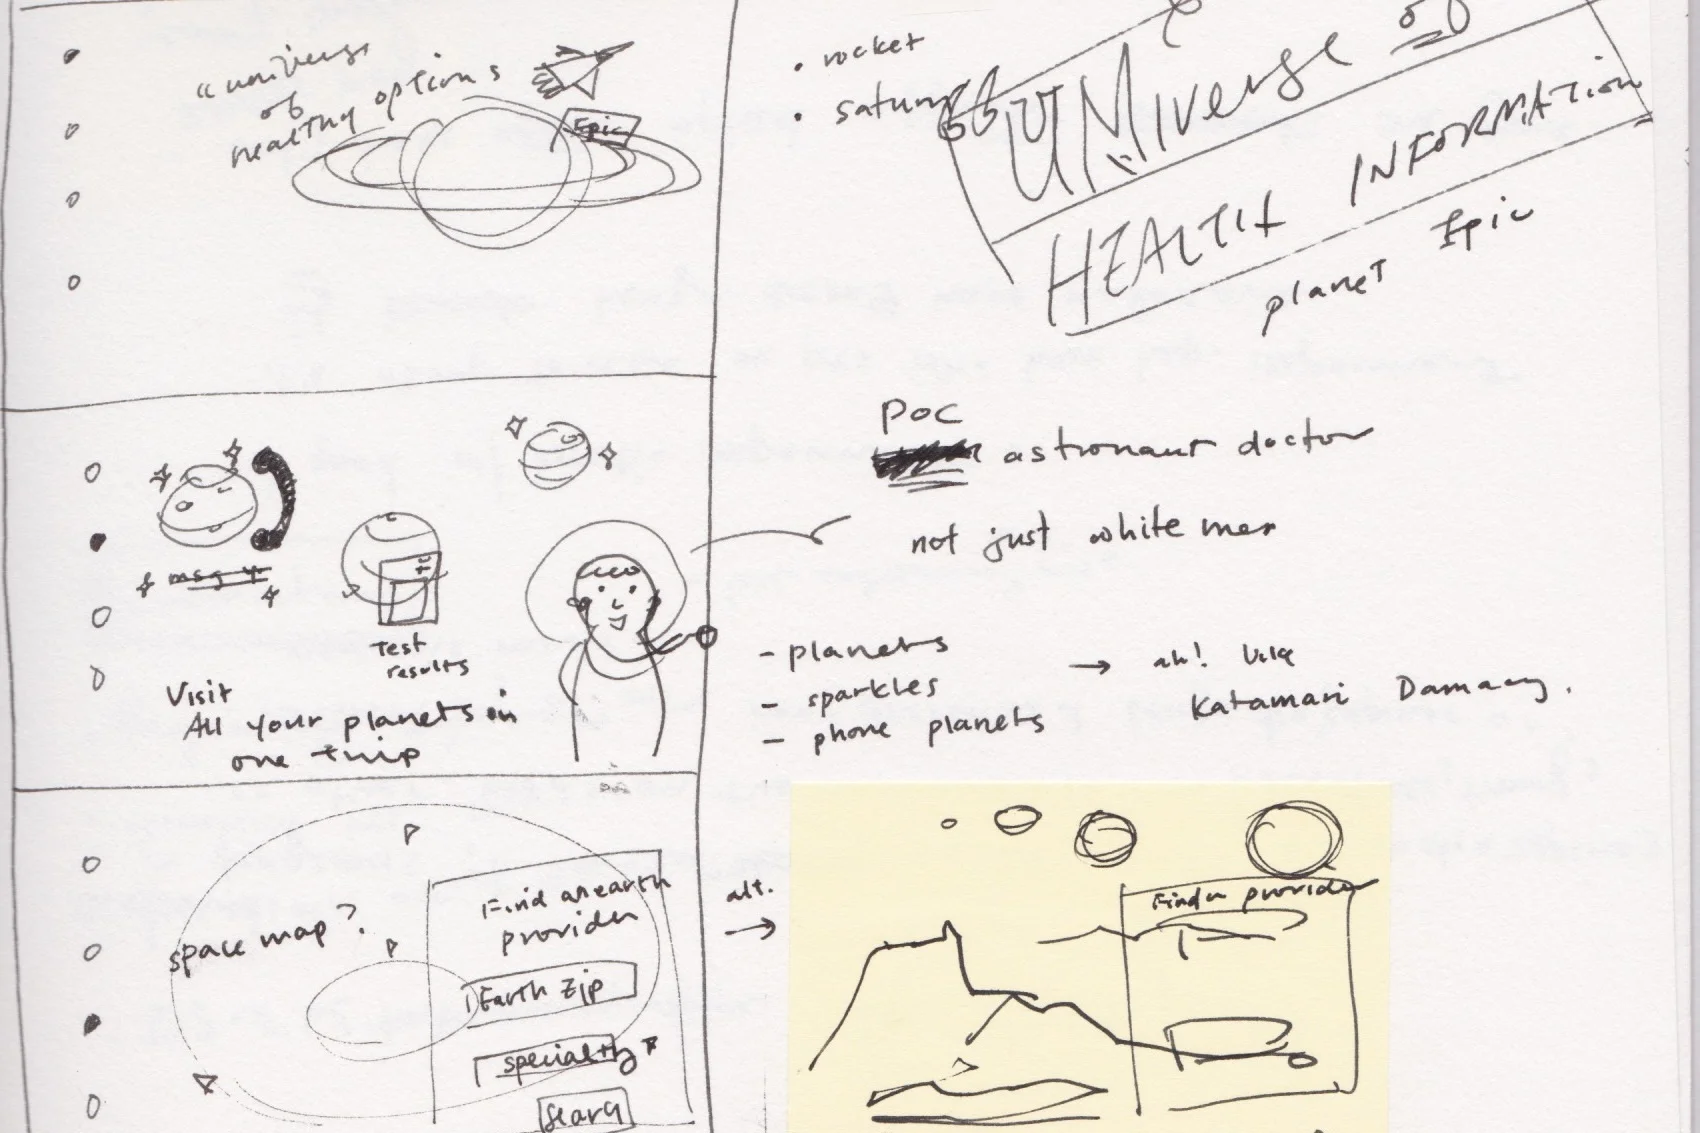 "univers
of
healthy options
Epic
• rocket
• saturn
"UNiverse of
HEALTH INFORMATION
planet Epic
POC
astronaut doctor
not just white men
msg
Test
results
Visit
All your planets in
one trip
- planets
- sparkles
- phone planets
→ ah! like
Katamari Damacy.
space map?
Find an earth
provider
Earth Zip
specialty
Search
alt.
→
Find a provider